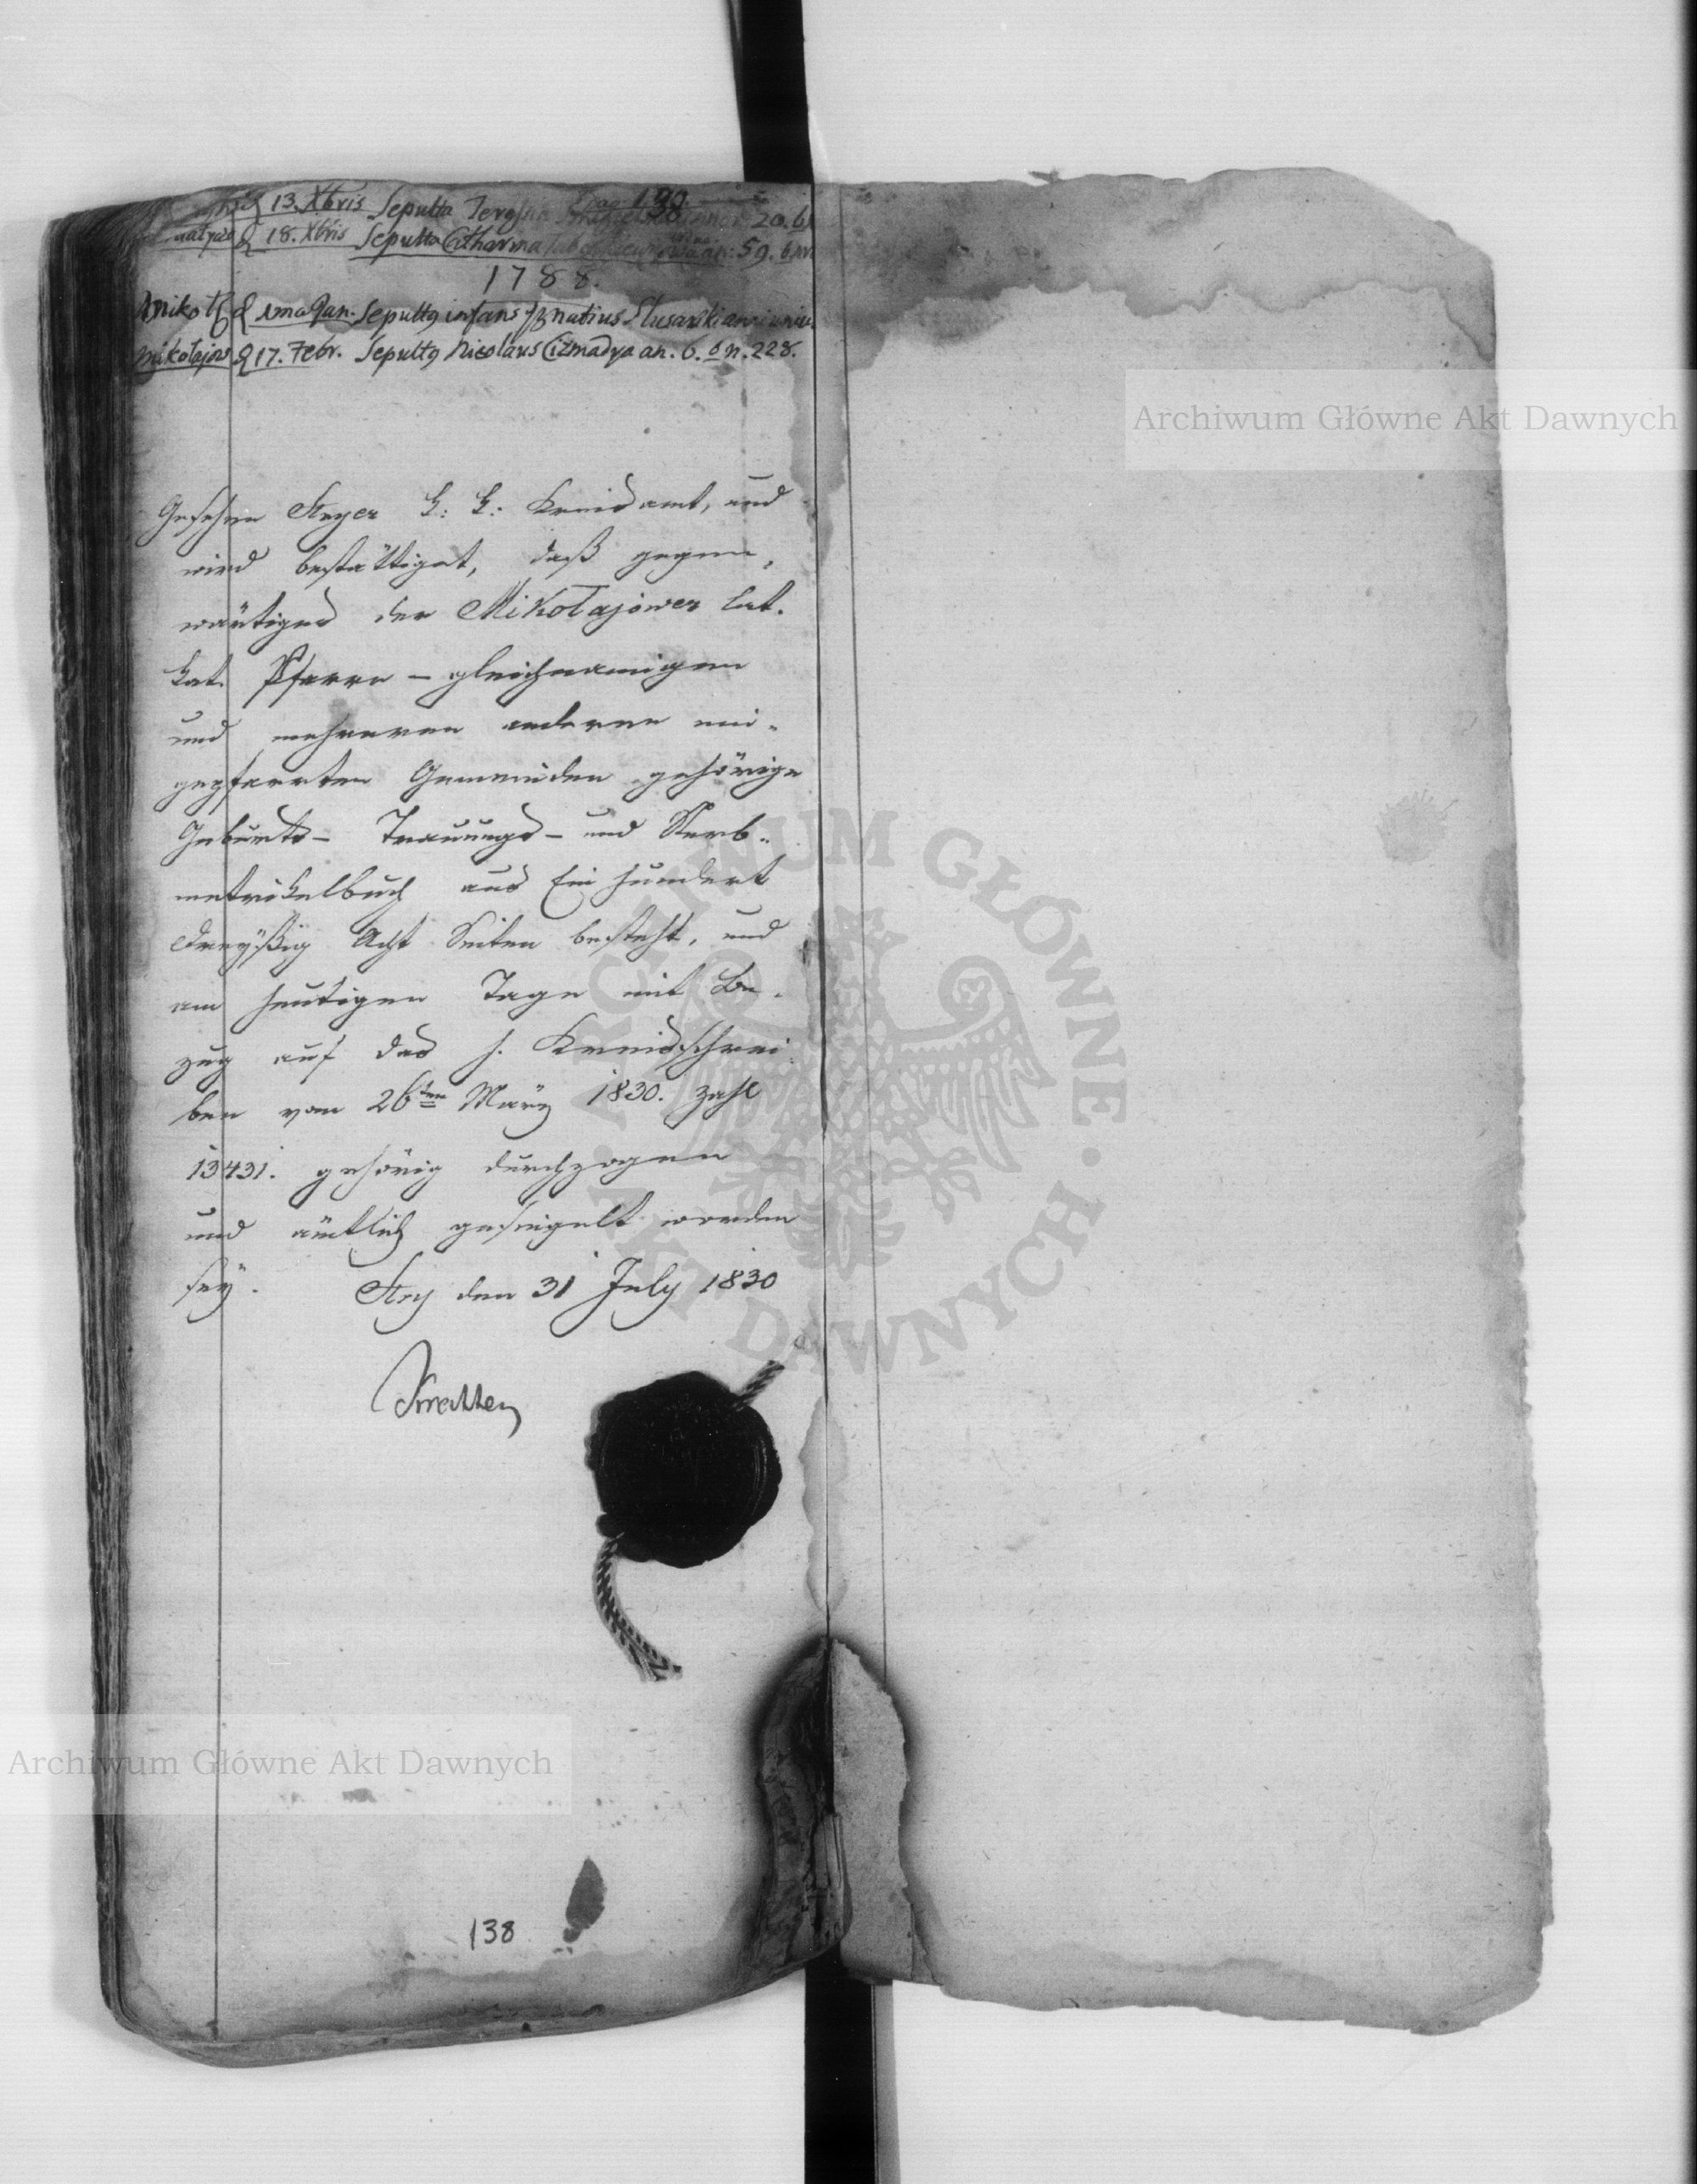 190.
13. Xbris Sepulta 20.
18. Xbris Sepulta Catharina an: 59.
1788.
Mikoł 1ma Jan. Sepultq infans Ignatius Slusarski anni unius
Mikołajow 17. Febr. Sepultq Nicolaus Cizmadya an. 6. n. 228.
Gesehen Stryer k: k: Kreisamt, und
wird bestättiget, daß gegen,
wärtiges der Mikołajower lat.
kat. Pfarre – gleichnamigen
und mehreren anderen ein-
gepfarrten Gemeinden gehörige
Geburts- Trauungs- und Sterb-
matrikelbuch aus Ein hundert
dreyßig Acht Seiten besteht, und
am heutigen Tage mit Be-
zug auf das h. Kreisschrei
ben vom 26ten März 1830. Zahl
13431. gehörig durchzogen
und ämtlich gesiegelt worden
sey. Stry den 31 July 1830
138
Archiwum Główne Akt Dawnych
ARCHIWUM GŁÓWNE AKT DAWNYCH
Archiwum Główne Akt Dawnych